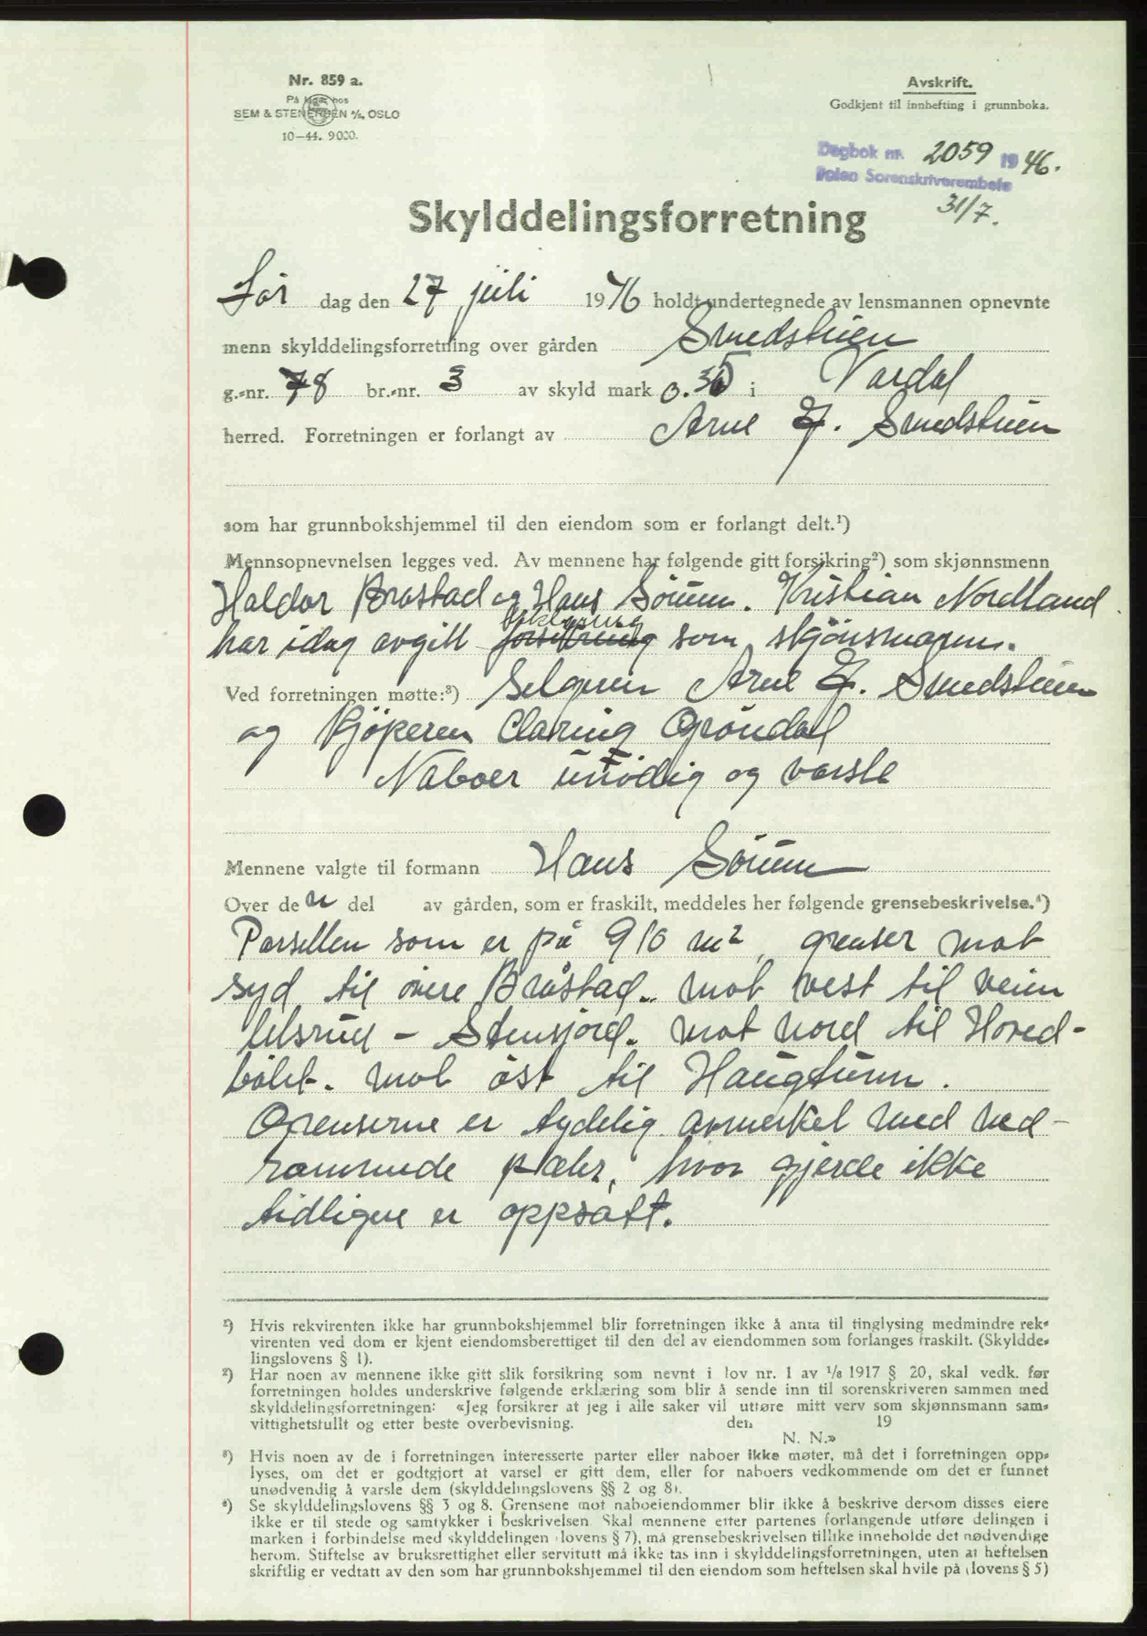 Nr. 859 a.
På lager hos
SEM & STENERSEN A/S, OSLO
10-44. 9000.
Avskrift.
Godkjent til innhefting i grunnboka.
Dagbok nr. 2059 1946.
Toten Sorenskriverembete
31/7.
Skylddelingsforretning
Lör dag den 27 juli 1946 holdt undertegnede av lensmannen opnevnte
menn skylddelingsforretning over gården Smedstuen
g.-nr. 78 br.-nr. 3 av skyld mark 0.35 i Vardal
herred. Forretningen er forlangt av Arne E. Smedstuen
som har grunnbokshjemmel til den eiendom som er forlangt delt.¹)
Mennsopnevnelsen legges ved. Av mennene har følgende gitt forsikring²) som skjønnsmenn
Haldor Bråstad og Hans Sörum. Kristian Nordland
har idag avgitt forsikring som skjönsmann.
Ved forretningen møtte:³) Selgeren Arne E. Smedstuen
og kjöperen Claring Gröndal
Naboer unödig og varsle
Mennene valgte til formann Hans Sörum
Over den del av gården, som er fraskilt, meddeles her følgende grensebeskrivelse.⁴)
Parsellen som er på 910 m², grenser mot
syd til övre Bråstad. mot vest til veien
- mot nord til Hoved-
bölet. mot öst til Haugtunn.
Grenserne er tydelig avmerket med ned-
rammede pæler, hvor gjerde ikke
tidligere er oppsatt.
¹) Hvis rekvirenten ikke har grunnbokshjemmel blir forretningen ikke å anta til tinglysing medmindre rek-
virenten ved dom er kjent eiendomsberettiget til den del av eiendommen som forlanges fraskilt. (Skyldde-
lingslovens § 1).
²) Har noen av mennene ikke gitt slik forsikring som nevnt i lov nr. 1 av 1/6 1917 § 20, skal vedk. før
forretningen holdes underskrive følgende erklæring som blir å sende inn til sorenskriveren sammen med
skylddelingsforretningen: «Jeg forsikrer at jeg i alle saker vil utføre mitt verv som skjønnsmann sam-
vittighetsfullt og etter beste overbevisning. den 19
N. N.»
³) Hvis noen av de i forretningen interesserte parter eller naboer ikke møter, må det i forretningen opp-
lyses, om det er godtgjort at varsel er gitt dem, eller for naboers vedkommende om det er funnet
unødvendig å varsle dem (skylddelingslovens §§ 2 og 8).
⁴) Se skylddelingslovens §§ 3 og 8. Grensene mot naboeiendommer blir ikke å beskrive dersom disses eiere
ikke er til stede og samtykker i beskrivelsen. Skal mennene etter partenes forlangende utføre delingen i
marken i forbindelse med skylddelingen (lovens § 7), må grensebeskrivelsen tillike inneholde det nødvendige
herom. Stiftelse av bruksrettighet eller servitutt må ikke tas inn i skylddelingsforretningen, uten at heftelsen
skriftlig er vedtatt av den som har grunnbokshjemmel til den eiendom som heftelsen skal hvile på (lovens § 5)